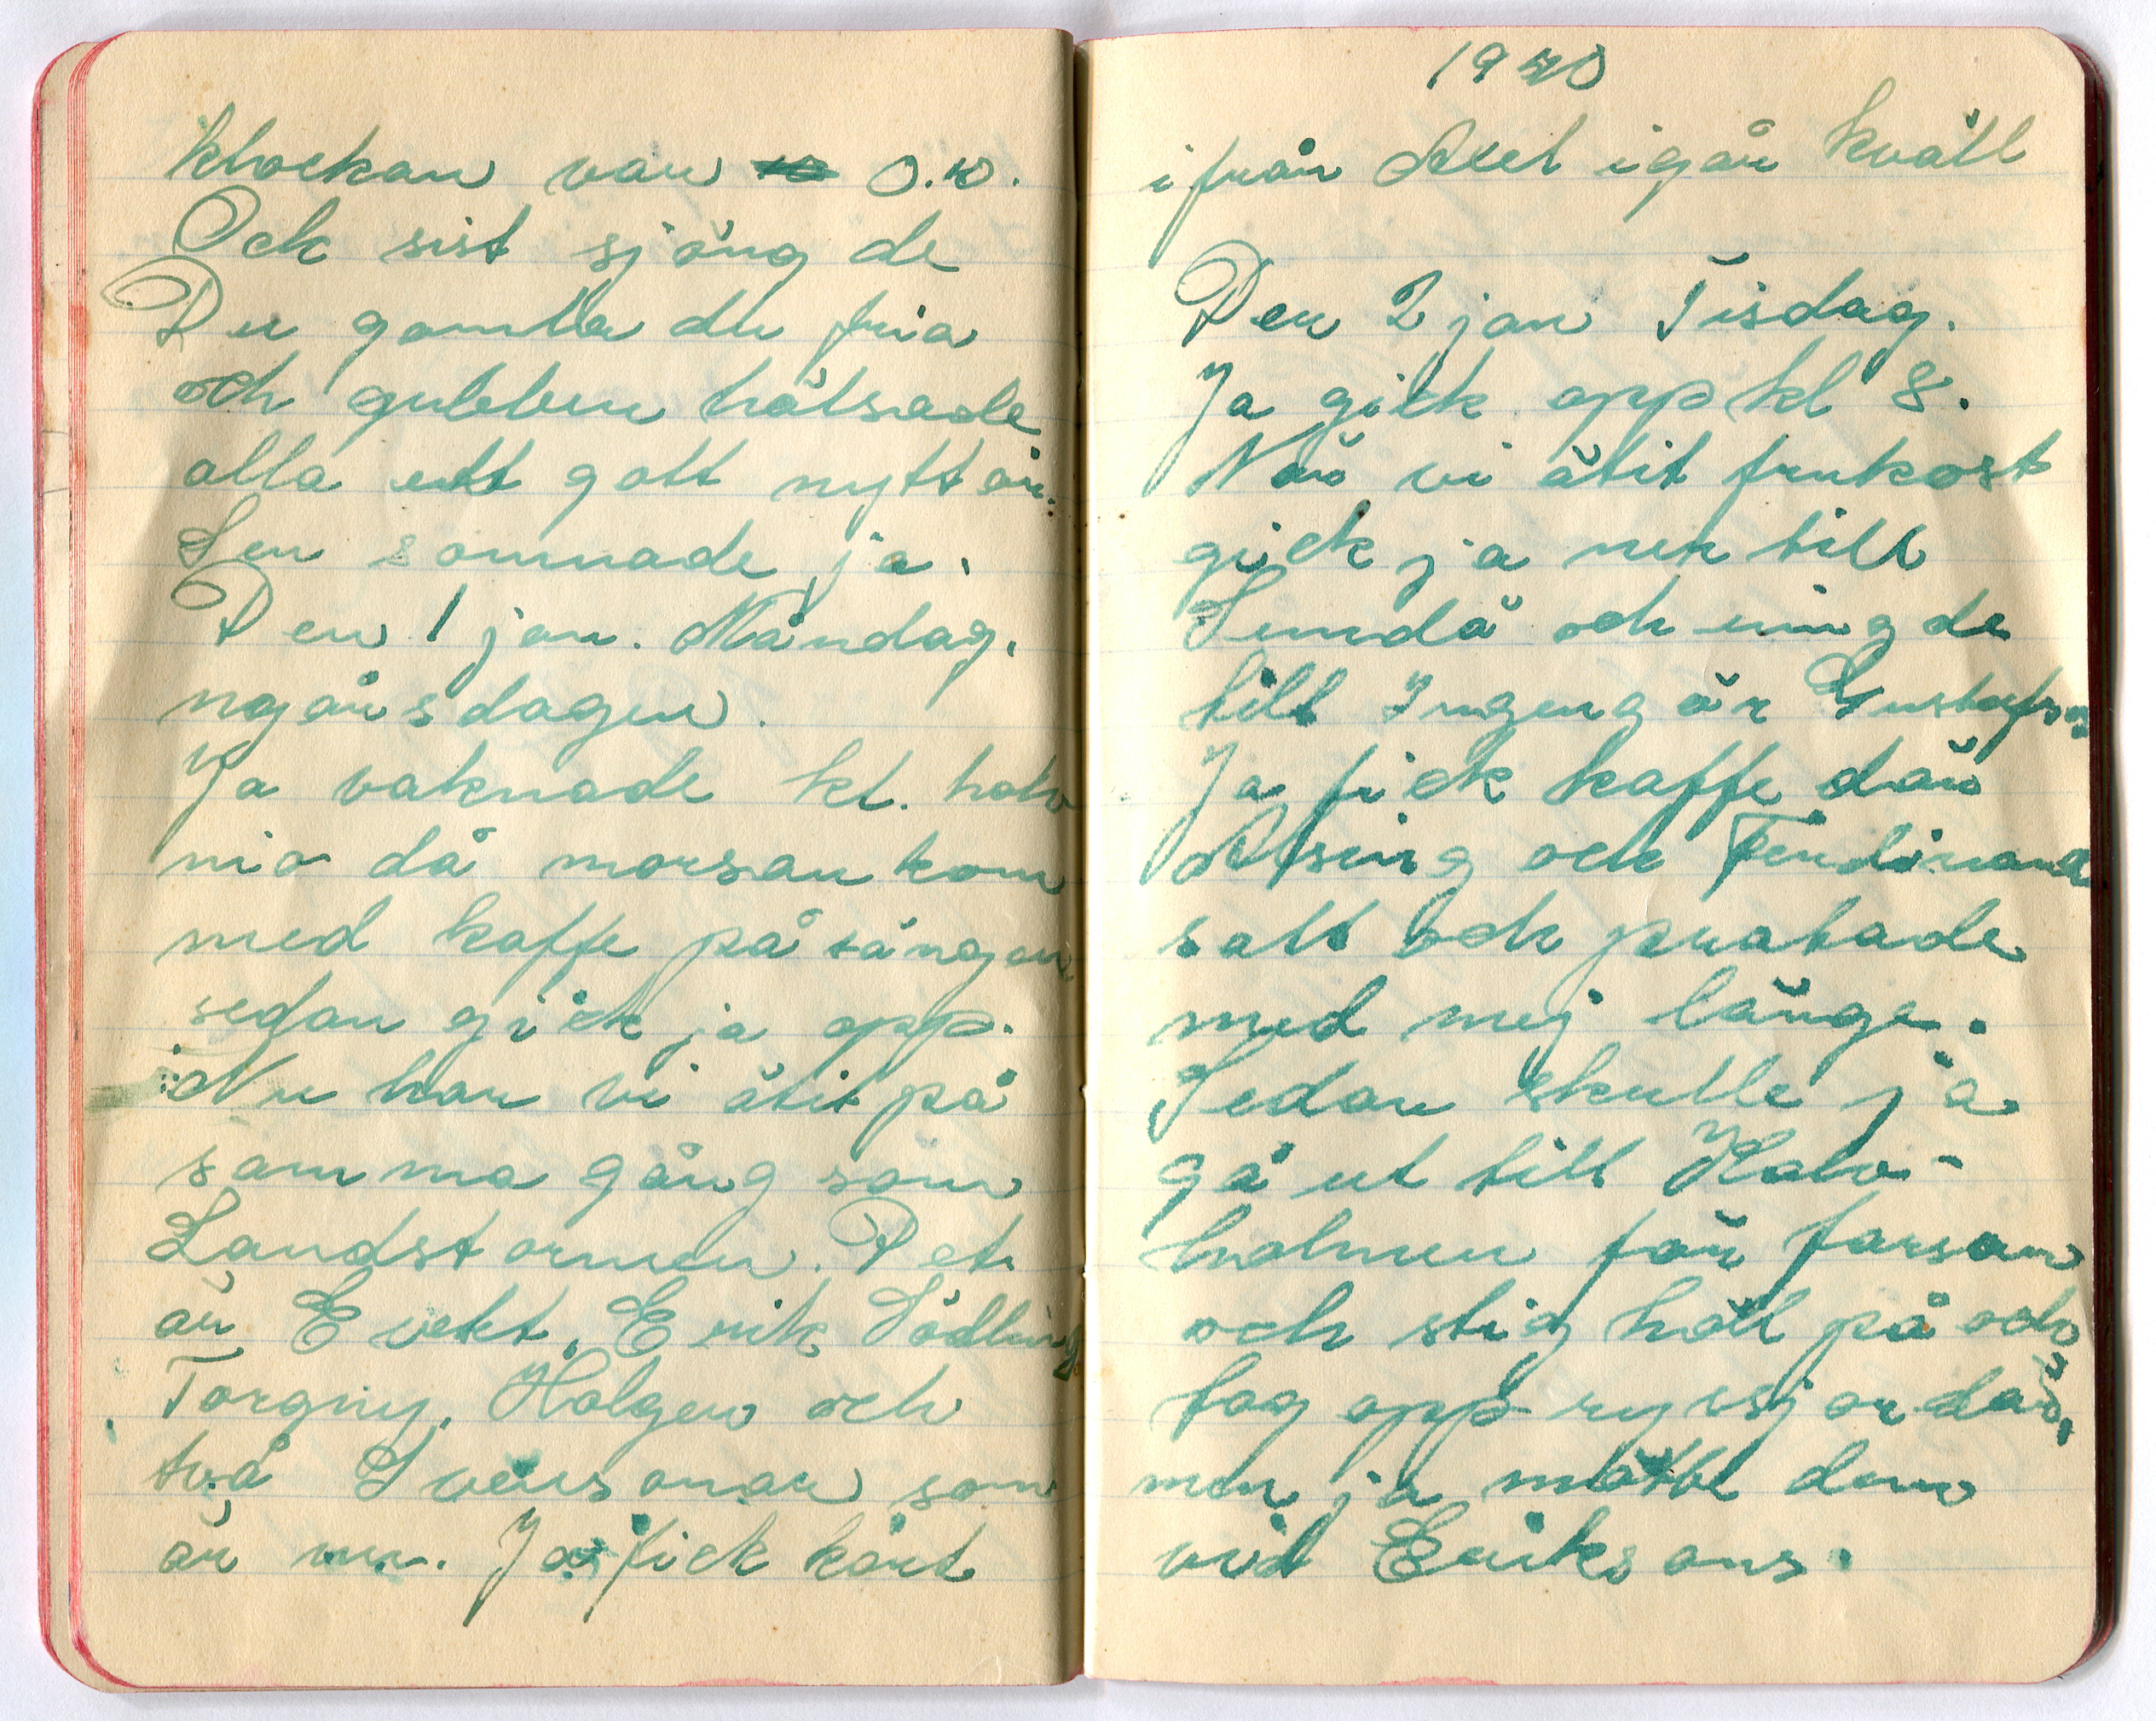 klockan var 0.10.
Ock sist sjöng de
Du gamla du fria
och gubben hälsade
alla ett gott nytt år.
Sen somnade ja.
Den 1 jan. Måndag.
nyårsdagen.
Ja vaknade kl. halv
nio då morsan kom
med kaffe på sängen
sedan gick ja opp.
Nu har vi ätit på
samma gång som
Landstormen. Det
är Evekt, Erik Södling
Torgny, Holger och
två Svensonar som
är nu. Ja fick kort
1940
ifrån Axel igår kväll
Den 2 jan Tisdag.
Ja gick opp kl 8.
När vi ätit frukost
gick ja ner till
Sundå och ringde
till Ingegär Gustafs
Ja fick kaffe där
Alsing och Ferdinand
satt och pratade
med mej länge.
Sedan skulle ja
gå ut till Halv-
holmen för farsan
och stig höll på och
tog opp ryssjor där,
men ja mötte dem
vid Eriksons.